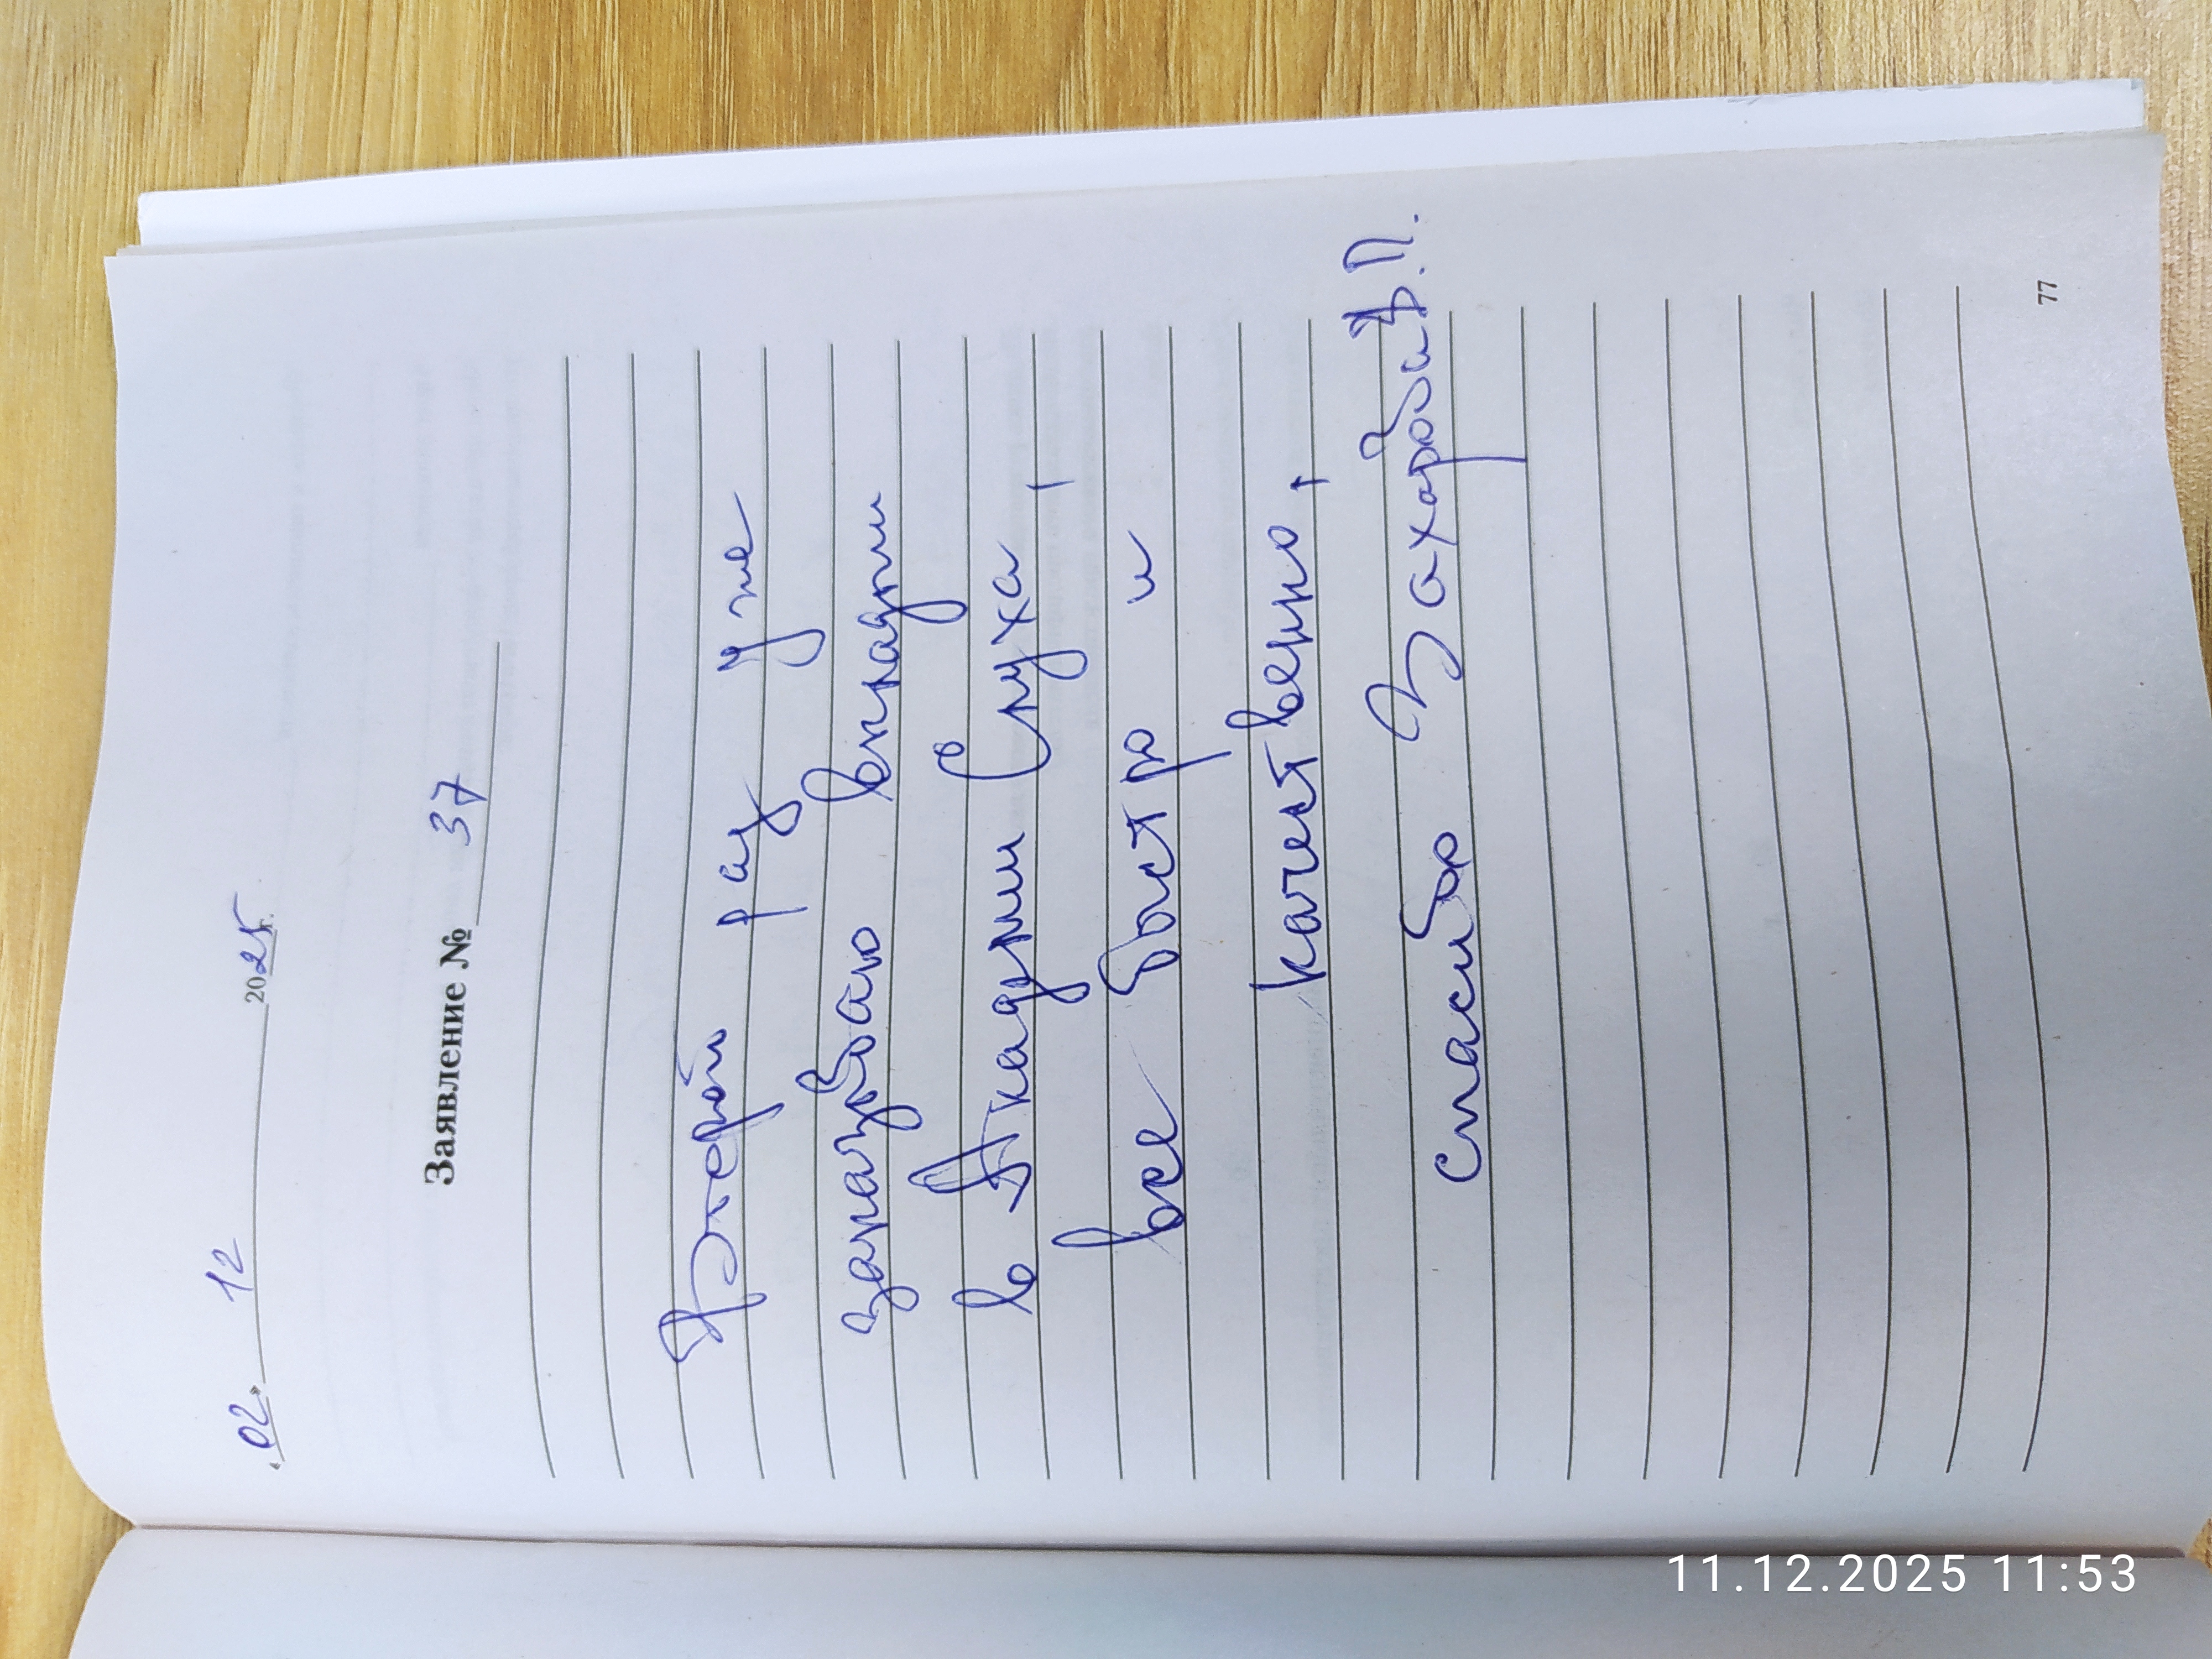 «02» 12 2025г.
Заявление № 37
Второй раз уже
заказываю вкладыши
в Академии Слуха,
все быстро и
качественно,
спасибо Захарова В.П.
77
11.12.2025 11:53